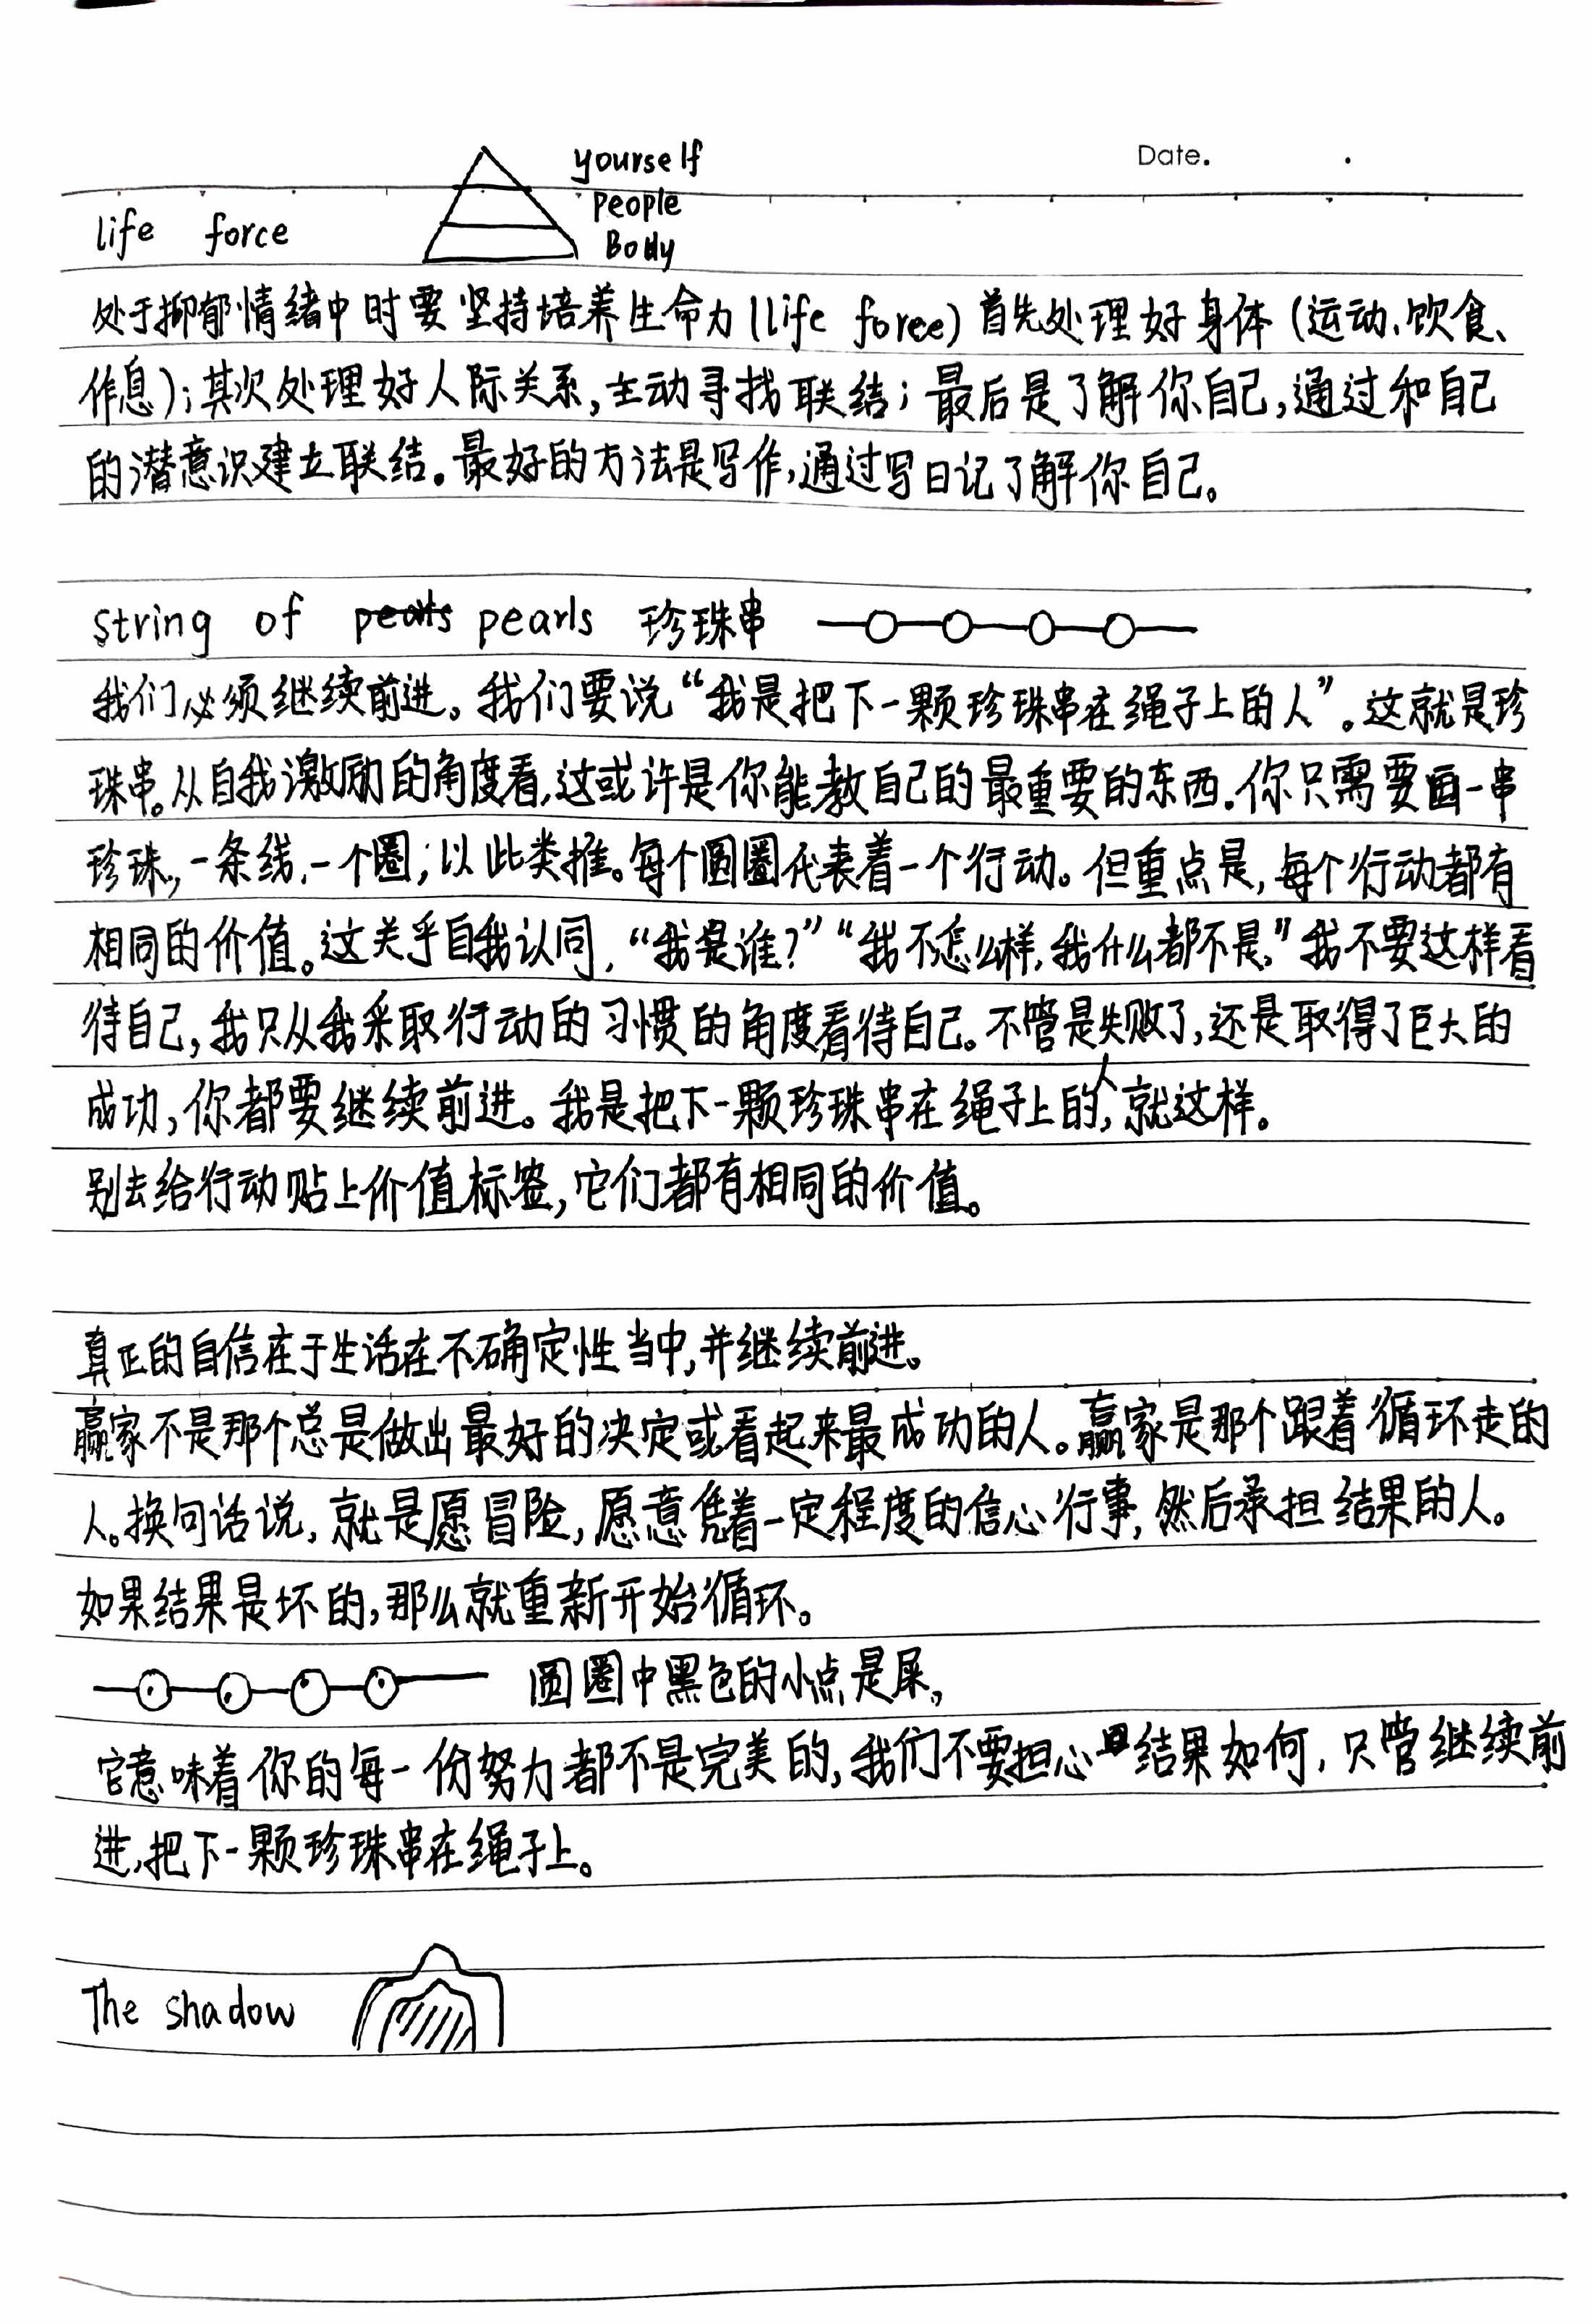 yourself
Date.
people
life force
Body
处于抑郁情绪中时要坚持培养生命力(life force)首先处理好身体(运动、饮食、
作息);其次处理好人际关系,主动寻找联结;最后是了解你自己,通过和自己
的潜意识建立联结。最好的方法是写作,通过写日记了解你自己。
string of pearls pearls 珍珠串
我们必须继续前进。我们要说“我是把下一颗珍珠串在绳子上的人”。这就是珍
珠串。从自我激励的角度看,这或许是你能教自己的最重要的东西.你只需要画一串
珍珠,一条线、一个圈;以此类推。每个圆圈代表着一个行动。但重点是,每个行动都有
相同的价值。这关乎自我认同,“我是谁?”“我不怎么样,我什么都不是。”我不要这样看
待自己,我只从我采取行动的习惯的角度看待自己。不管是失败了,还是取得了巨大的
成功,你都要继续前进。我是把下一颗珍珠串在绳子上的人,就这样。
别去给行动贴上价值标签,它们都有相同的价值。
真正的自信在于生活在不确定性当中,并继续前进。
赢家不是那个总是做出最好的决定或看起来最成功的人。赢家是那个跟着循环走的
人。换句话说,就是愿冒险,愿意凭着一定程度的信心行事,然后承担结果的人。
如果结果是坏的,那么就重新开始循环。
圆圈中黑色的小点是屎,
它意味着你的每一份努力都不是完美的,我们不要担心结果如何,只管继续前
进,把下一颗珍珠串在绳子上。
The shadow